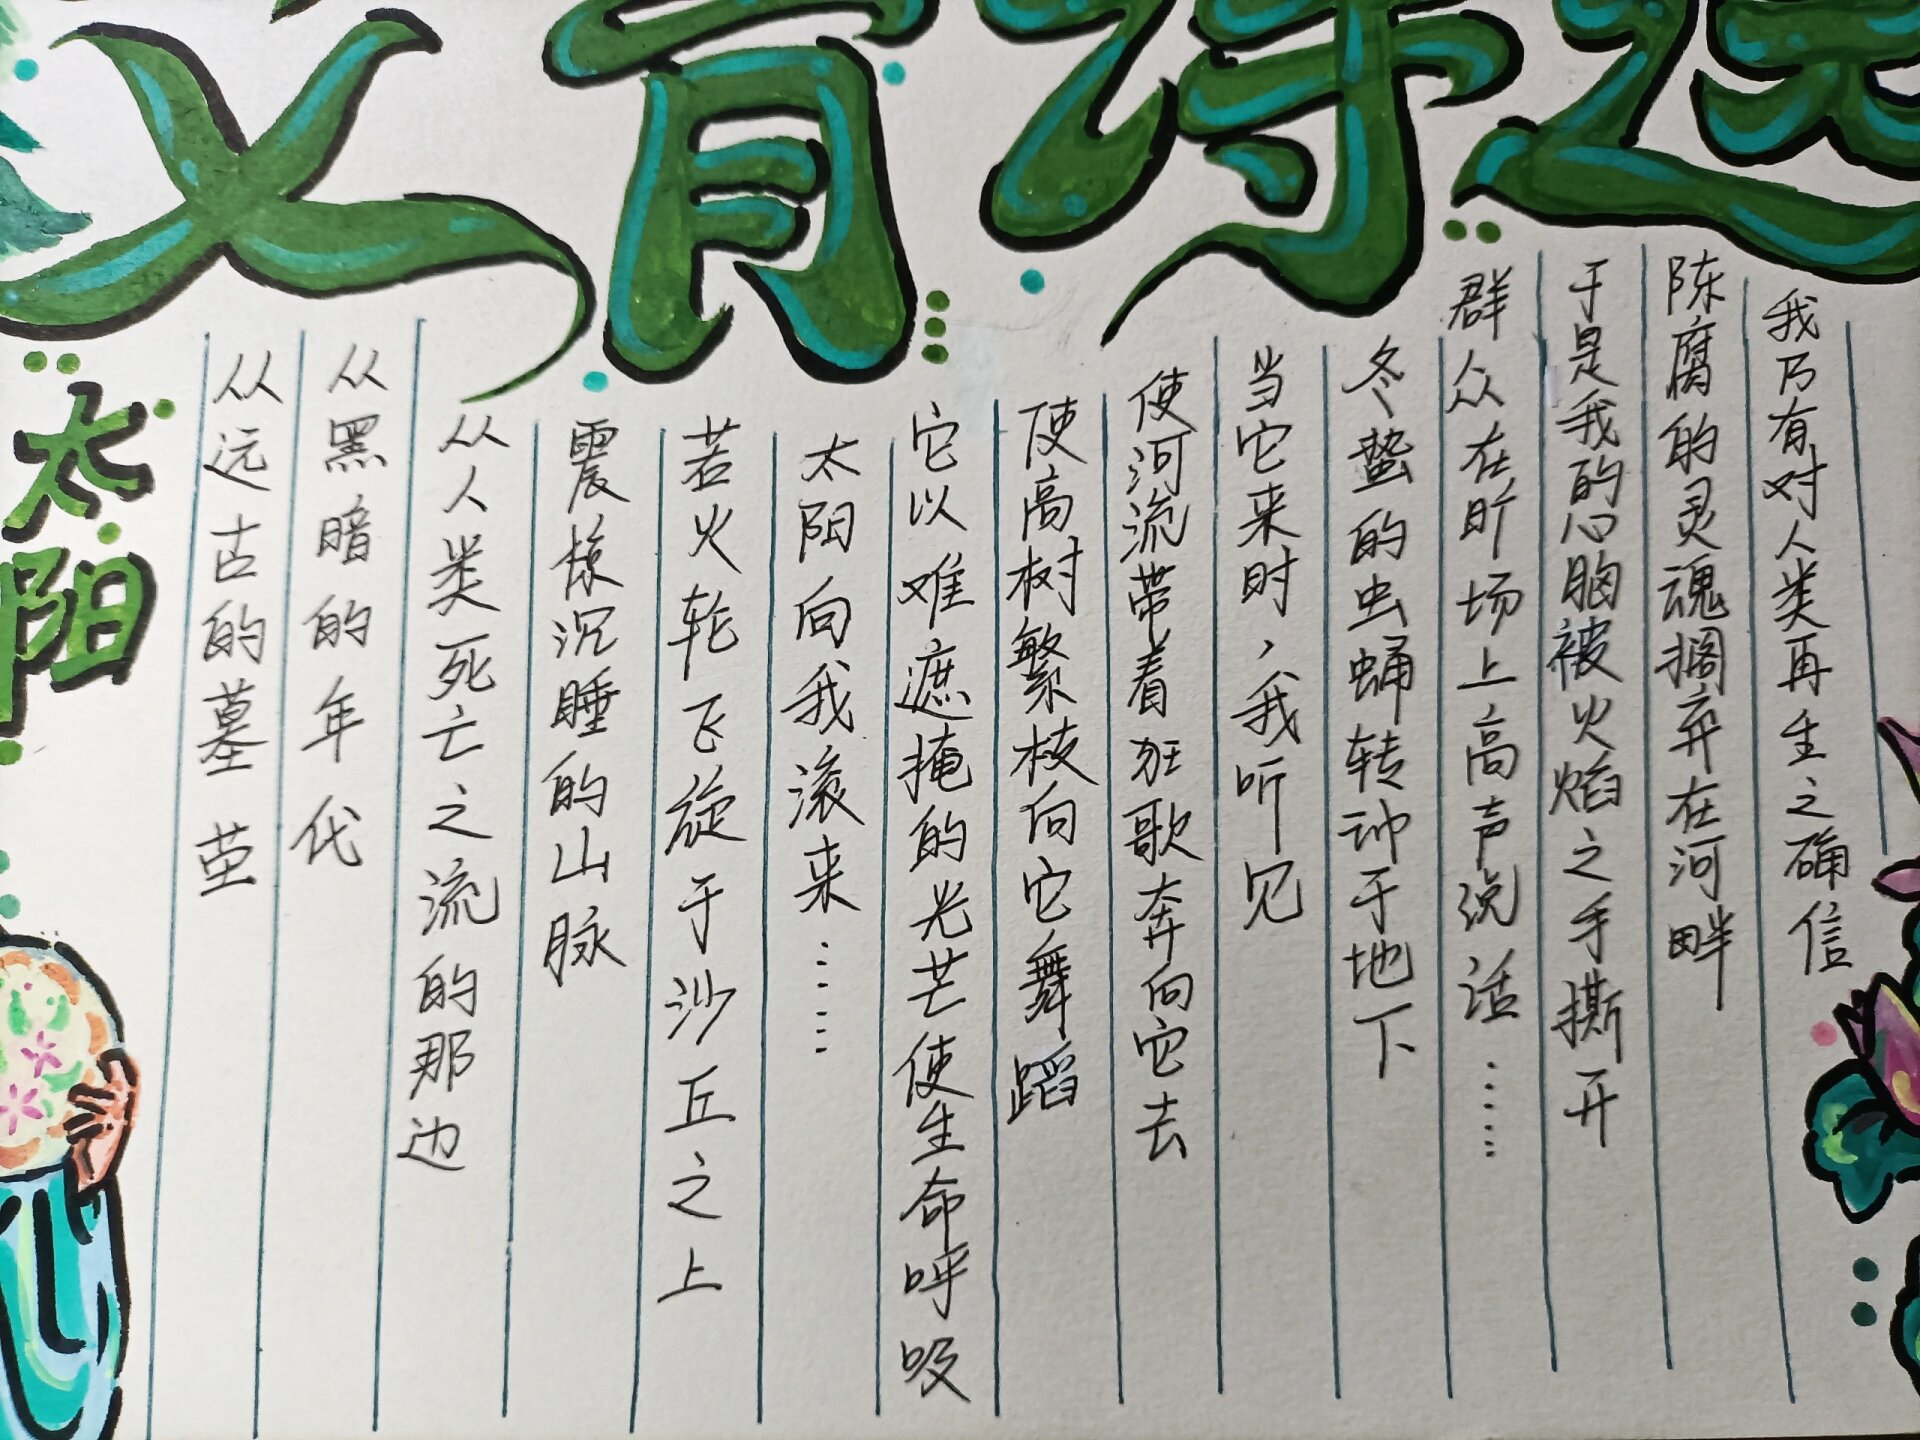 艾青诗选
太阳
从远古的墓茔
从黑暗的年代
从人类死亡之流的那边
震惊沉睡的山脉
若火轮飞旋于沙丘之上
太阳向我滚来……
它以难遮掩的光芒使生命呼吸
使高树繁枝向它舞蹈
使河流带着狂歌奔向它去
当它来时,我听见
冬蛰的虫蛹转动于地下
群众在旷场上高声说话……
于是我的心胸被火焰之手撕开
陈腐的灵魂搁弃在河畔
我乃有对人类再生之确信